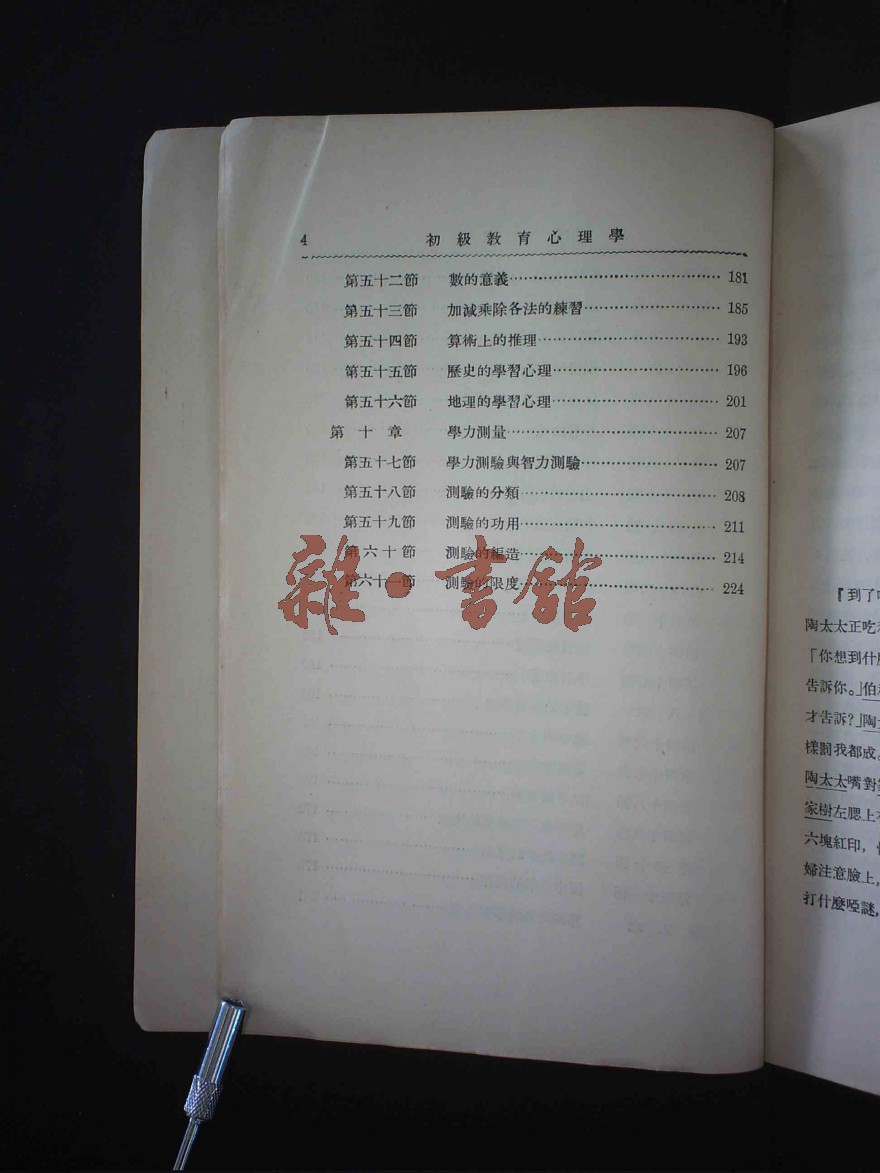 4 初級教育心理學
第五十二節 數的意義 181
第五十三節 加減乘除各法的練習 185
第五十四節 算術上的推理 193
第五十五節 歷史的學習心理 196
第五十六節 地理的學習心理 201
第十章 學力測量 207
第五十七節 學力測驗與智力測驗 207
第五十八節 測驗的分類 208
第五十九節 測驗的功用 211
第六十節 測驗的編造 214
第六十一節 測驗的限度 224
雜·書館
『到了
陶太太正吃
「你想到什
告訴你。」伯
才告訴?」陶
樣罰我都成。
陶太太嘴對
家樹左腮上
六塊紅印,
婦注意臉上,
打什麼啞謎,